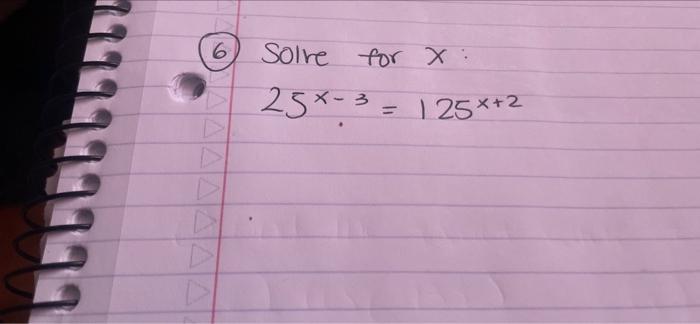 6 Solve for x:
25^{x-3} = 125^{x+2}